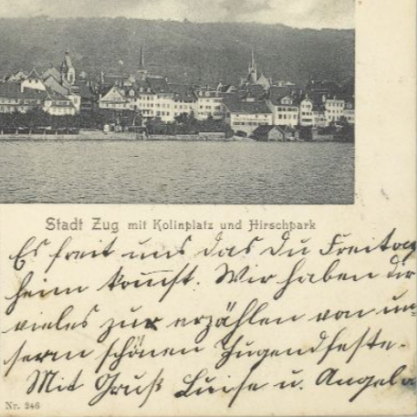 Stadt Zug mit Kolinplatz und Hirschpark
Es freit uns das du Freitag
heim kommst. Wir haben dir
vieles zur erzählen von un-
serm schönen Jugendfeste.
Mit Gruß Luise u. Angela
Nr. 246